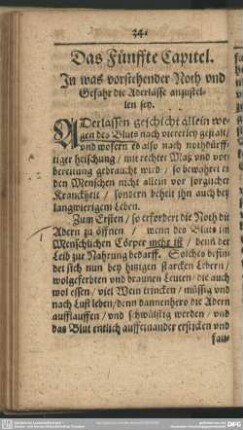 34.
Das Fünffte Capitel.
In was vorstehender Noth vnd
Gefahr die Aderlässe anzustel-
len sey.
ADerlassen geschicht allein we-
gen des Bluts nach viererley gestalt/
vnd wofern es also nach nothdürff-
tiger heischung / mit rechter Maß vnd vor-
bereitung gebraucht wird / so bewahret es
den Menschen nicht allein vor sorglicher
Kranckheit / sondern behelt ihn auch bey
langwierigem Leben.
Zum Ersten / so erfordert die Noth die
Adern zu öffnen / wenn des Bluts im
Menschlichen Cörper mehr ist / denn der
Leib zur Nahrung bedarff. Solches befin-
det sich nun bey hitzigen starcken Lebern/
wolgeferbten vnd braunen Leuten / die auch
wol essen / viel Wein trincken / müssig vnd
nach Lust leben/denn dannenhero die Adern
aufflauffen / vnd schwülstig werden / vnd
das Blut entlich auffeinander ersticken vnd
fau-